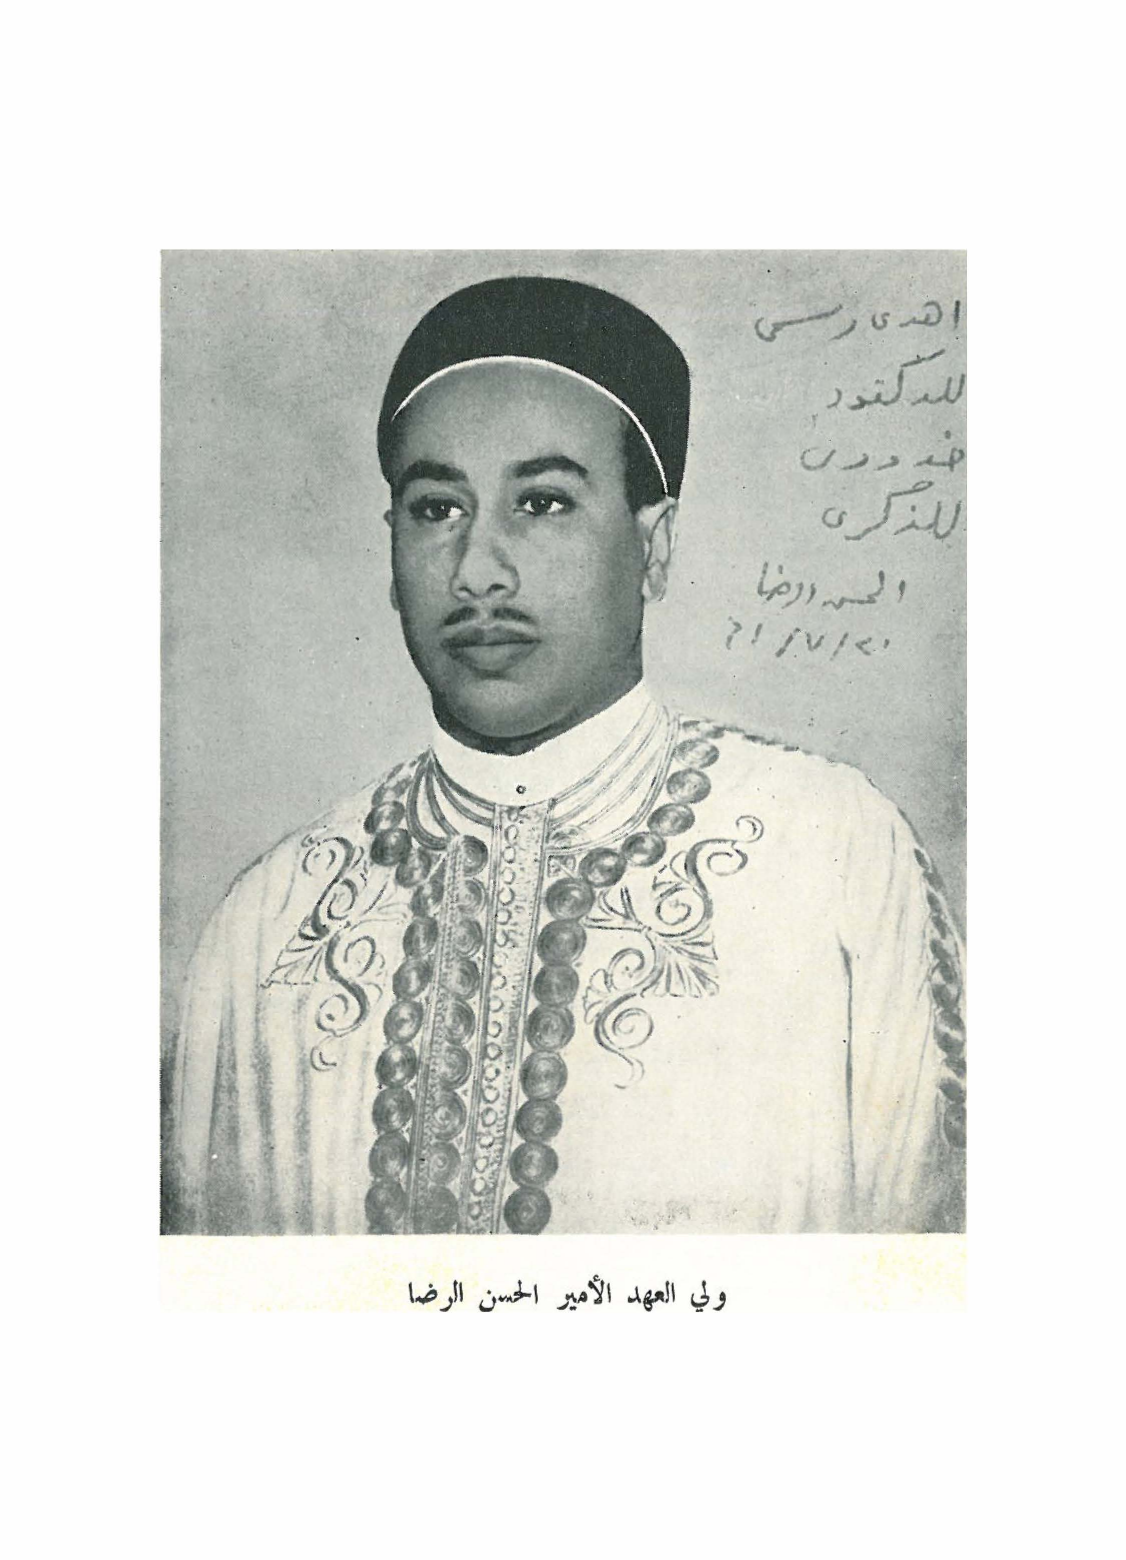 اهدى رسمي
للدكتور
خدوري
للذكرى
الحسن الرضا
ولي العهد الأمير الحسن الرضا